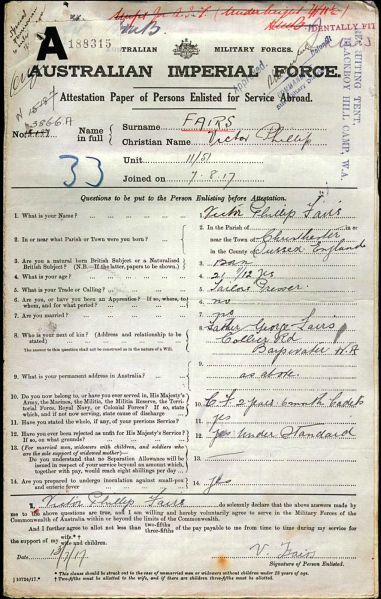 A 188315
AUSTRALIAN MILITARY FORCES.
AUSTRALIAN IMPERIAL FORCE.
RECRUITING TENT,
BLACKBOY HILL CAMP, W.A.
Attestation Paper of Persons Enlisted for Service Abroad.
3866A
33
Name in full
Surname FAIRS
Christian Name Victor Phillip
Unit 11/51
Joined on 7.8.17
Questions to be put to the Person Enlisting before Attestation.
1. What is your Name? 1. Victor Phillip Fairs
2. In or near what Parish or Town were you born? 2. In the Parish of
near the Town of Chichester
in the County of Sussex England
3. Are you a natural born British Subject or a Naturalised British Subject? (N.B.—If the latter, papers to be shown.) 3.
4. What is your age? 4. 21 yrs
5. What is your Trade or Calling? 5.
6. Are you, or have you been an Apprentice? If so, where, to whom, and for what period? 6. no
7. Are you married? 7. no
8. Who is your next of kin? (Address and relationship to be stated) 8. Father George Fairs
Collier Rd
Bayswater W.A
The answer to this question should not be construed as in the nature of a Will.
9. What is your permanent address in Australia? 9. as above.
10. Do you now belong to, or have you ever served in, His Majesty's Army, the Marines, the Militia, the Militia Reserve, the Territorial Force, Royal Navy, or Colonial Forces? If so, state which, and if not now serving, state cause of discharge 10. C.F 2 years 6 month Cadets
11. Have you stated the whole, if any, of your previous Service? 11. yes
12. Have you ever been rejected as unfit for His Majesty's Service? If so, on what grounds? 12. Yes Under Standard
13. (For married men, widowers with children, and soldiers who are the sole support of widowed mother)—
Do you understand that no Separation Allowance will be issued in respect of your service beyond an amount which, together with pay, would reach eight shillings per day
14. Are you prepared to undergo inoculation against small-pox and enteric fever 14. yes
I, Victor Phillip Fairs do solemnly declare that the above answers made by
me to the above questions are true, and I am willing and hereby voluntarily agree to serve in the Military Forces of the
Commonwealth of Australia within or beyond the limits of the Commonwealth.
And I further agree to allot not less than two-fifths three-fifths of the pay payable to me from time to time during my service for
the support of my wife.*† wife and children.
Date
V. Fairs
Signature of Person Enlisted.
* This clause should be struck out in the case of unmarried men or widowers without children under 18 years of age.
† Two-fifths must be allotted to the wife, and if there are children three-fifths must be allotted.